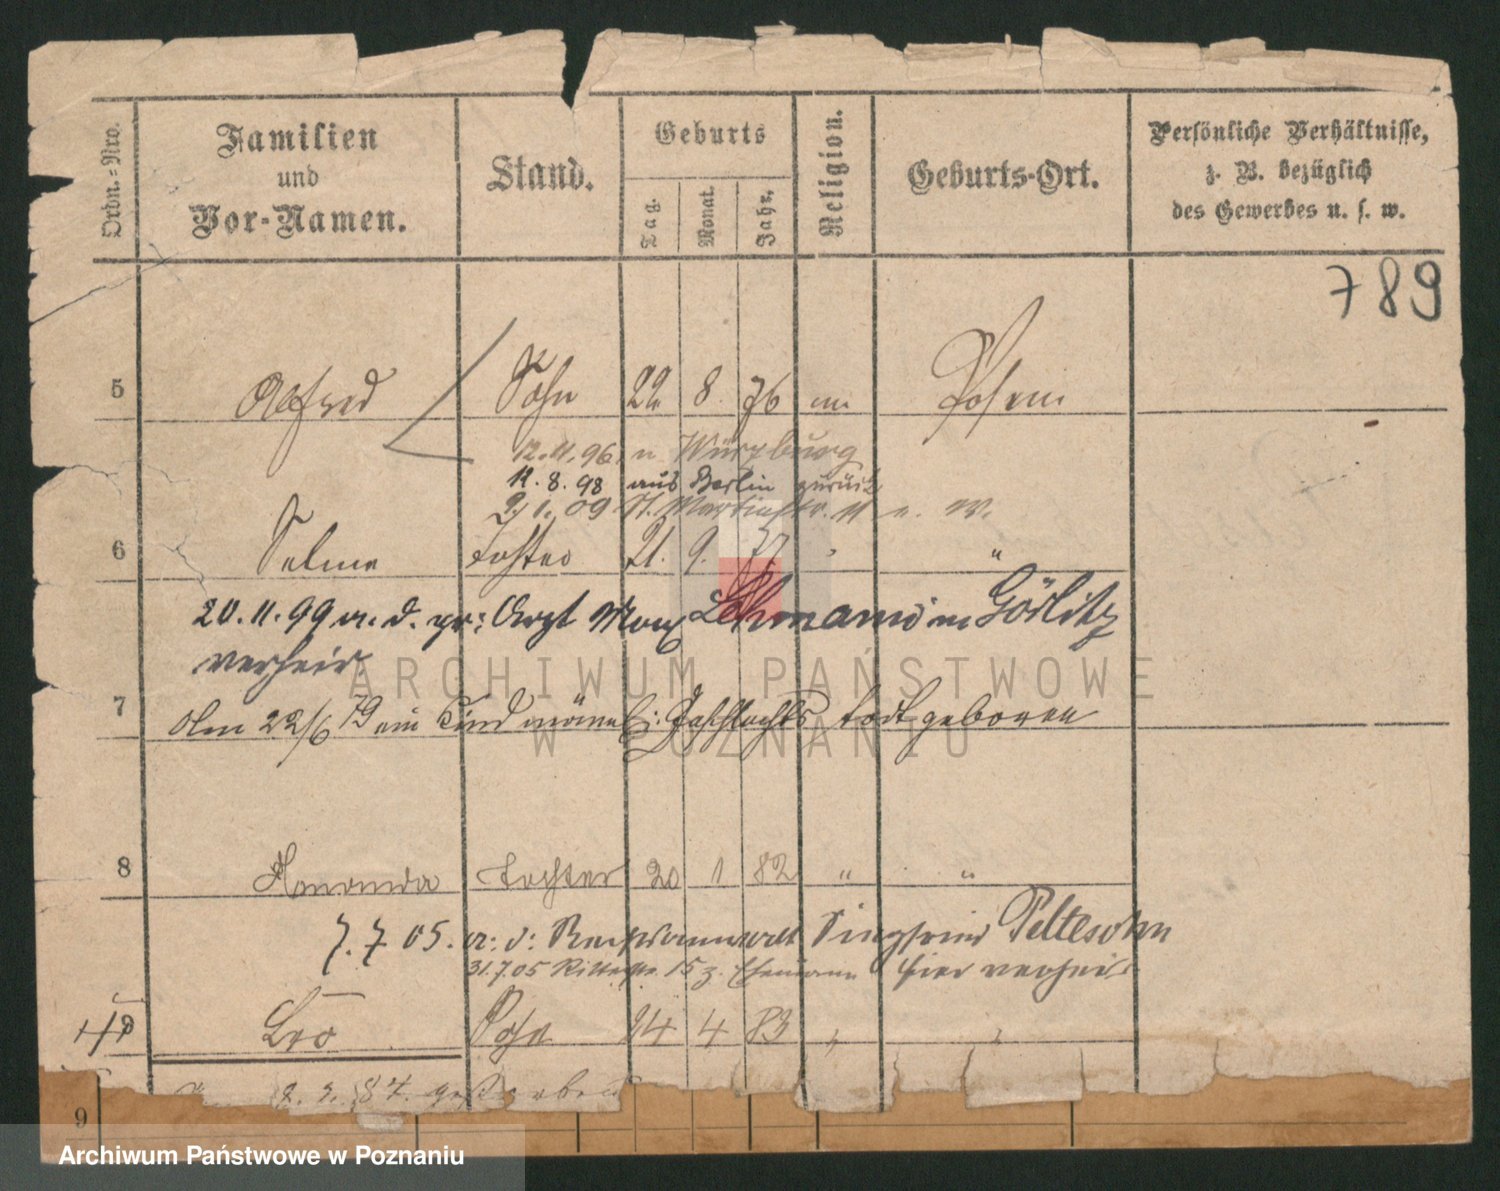 Ordn.=Nro.
Familien
und
Vor-Namen.
Stand.
Geburts
Tag.
Monat.
Jahr.
Religion.
Geburts-Ort.
Persönliche Verhältnisse,
z. B. bezüglich
des Gewerbes u. s. w.
789
5 Alfred Sohn 22 8 76 m Posen
12.11.96. n Würzburg
12.8.98 aus Berlin zurück
2/1.09 St. Martinstr. 11
6 Selma Tochter 21. 9. 77 "
20.11.99 a. d. pr: Arzt Max Lehmann in Görlitz
verheir.
7 Am 22/6 79 ein Kind männl: Geschlechts todt geboren
8 Tochter 20 1 82 " "
7.7 05. a: d: Rechtsanwalt Siegfried Peltesohn
31.7.05 Ritterstr. 15 z. Ehemann hier verheir.
9 Leo Sohn 24 4 83 " "
2. 3. 84. gestorben
9
ARCHIWUM PAŃSTWOWE
W POZNANIU
Archiwum Państwowe w Poznaniu